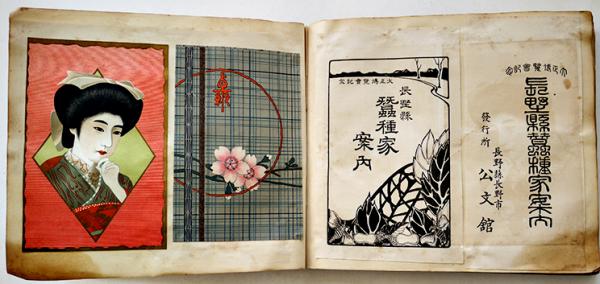 大正博覽會記念
長野縣蠶種家案内
發行所
長野縣長野市
公文館
大正博覽會記念
長野縣
蠶種家
案内